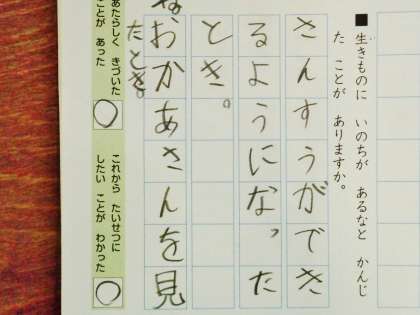 ■ 生きものに いのちが あるなと かんじ
た ことが ありますか。
さんすうができ
るようになった
とき。
おかあさんを見
たとき。
あたらしく きづいた
ことが あった
これから たいせつに
したい ことが わかった